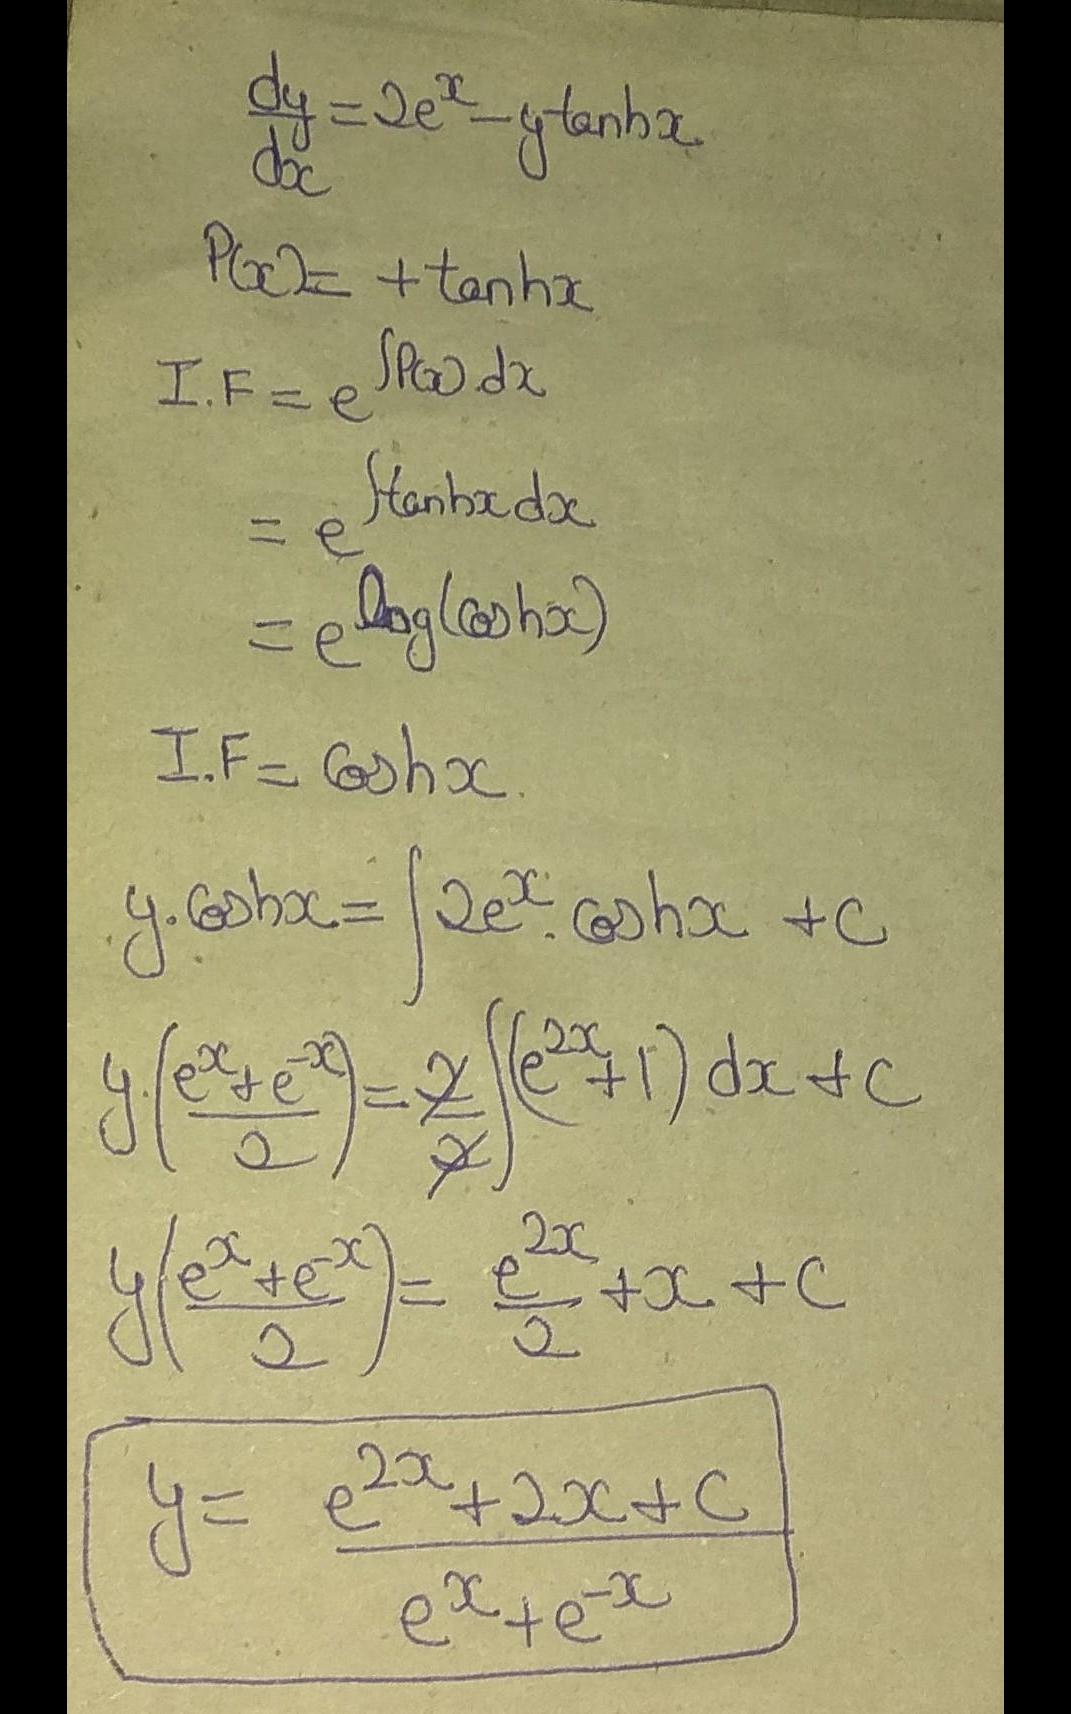 dy/dx = 2e^x - y tanhx
P(x) = + tanhx
I.F = e^∫P(x) dx
= e^∫tanhx dx
= e^log(coshx)
I.F = coshx.
y.coshx = ∫2e^x. coshx + c
y.((e^x+e^-x)/2) = 2/2 ∫(e^2x+1) dx + c
y((e^x+e^-x)/2) = e^2x/2 + x + c
y = (e^2x + 2x + c)/(e^x + e^-x)